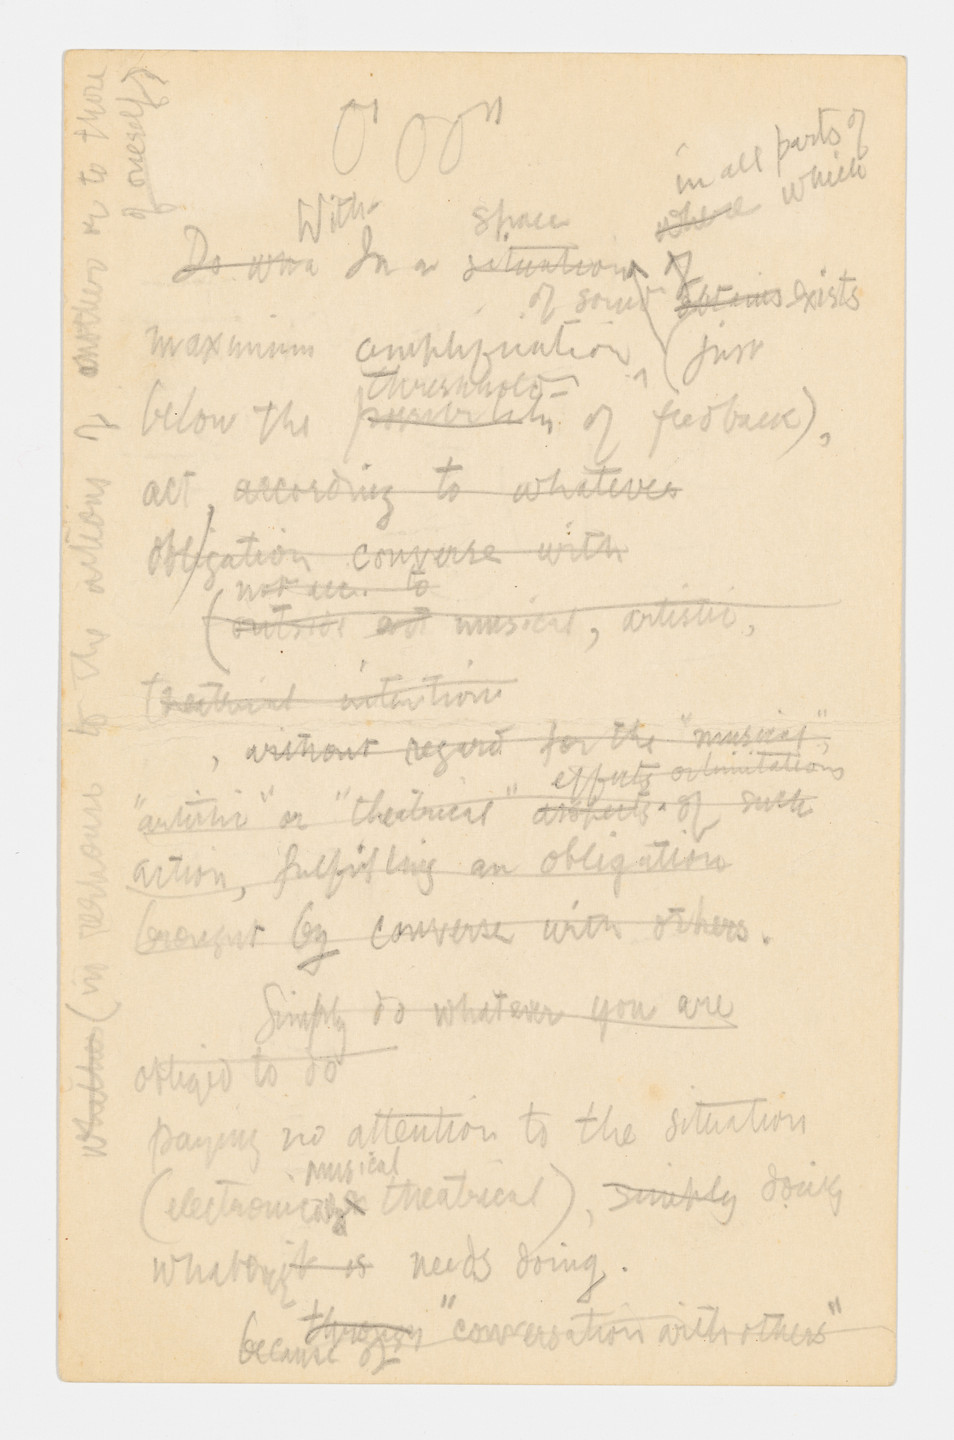 0' 00"
in all parts of
With space where which
Do wha In a situation of
of sound obtains exists
maximum amplification (just
threshold
below the possibility of feedback),
act, according to whatever
obligation converse with
not acc. to
(outside act musical, artistic,
theatrical intention
, without regard for the "musical",
effects or limitations
"artistic" or "theatrical" aspects of such
action, fulfilling an obligation
brought by converse with others.
Simply do whatever you are
obliged to do
paying no attention to the situation
musical
(electronic, theatrical), simply doing
whatever it is needs doing.
through "conversation with others"
because of
whether (in perhaps to the actions of another or to those
of oneself)